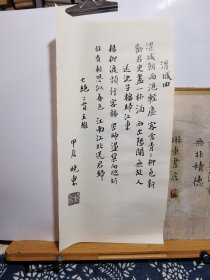 渭城曲
渭城朝雨浥輕塵 客舍青々柳色新
勸君更盡一杯酒 西出陽關無故人
送沈子福歸江東
楊柳渡頭行客稀 罟師蕩槳向臨圻
惟有相思似春色 江南江北送君歸
七絕二首王維
甲辰 曉東
東書店
無非積德